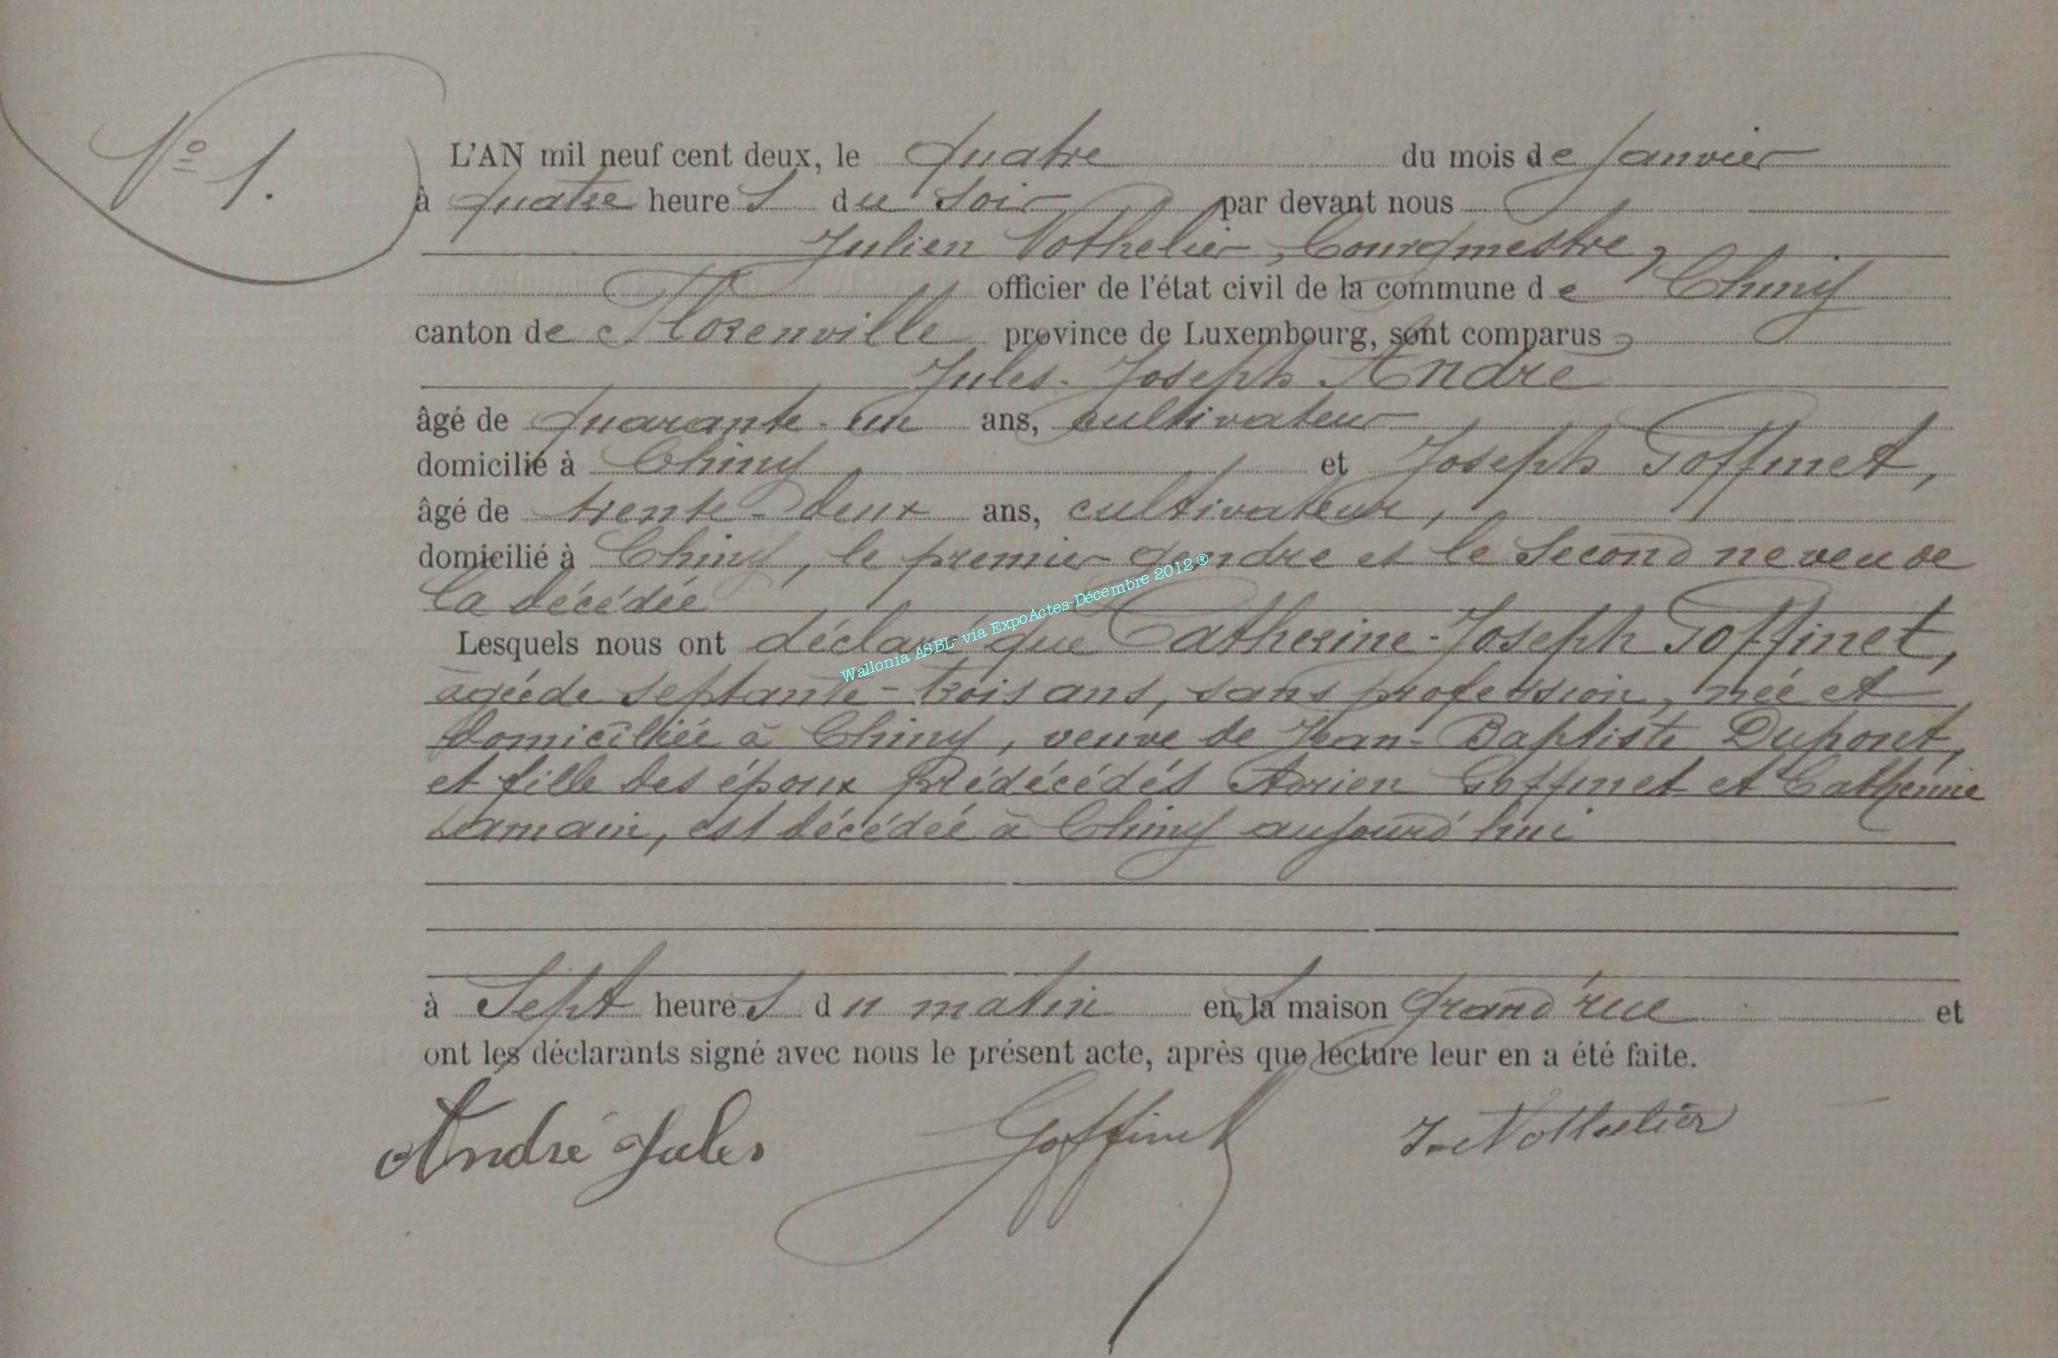 N° 1.
L'AN mil neuf cent deux, le quatre du mois de Janvier
à quatre heures du soir par devant nous
Julien Nothelier, Bourgmestre,
officier de l'état civil de la commune de Chiny
canton de Florenville province de Luxembourg, sont comparus
Jules-Joseph André
âgé de quarante-un ans, cultivateur
domicilié à Chiny et Joseph Goffinet,
âgé de trente-deux ans, cultivateur,
domicilié à Chiny, le premier gendre et le second neveu de
la décédée
Lesquels nous ont déclaré que Catherine-Joseph Goffinet,
agée de septante-trois ans, sans profession, née et
domiciliée à Chiny, veuve de Jean-Baptiste Dupont,
et fille des époux prédécédés Adrien Goffinet et Catherine
Lamain, est décédée à Chiny aujourd'hui
à Sept heures du matin en sa maison Grand'rue et
ont les déclarants signé avec nous le présent acte, après que lecture leur en a été faite.
André Jules Goffinet J. Nothelier
Wallonia ASBL- via ExpoActes-Décembre 2012 ®